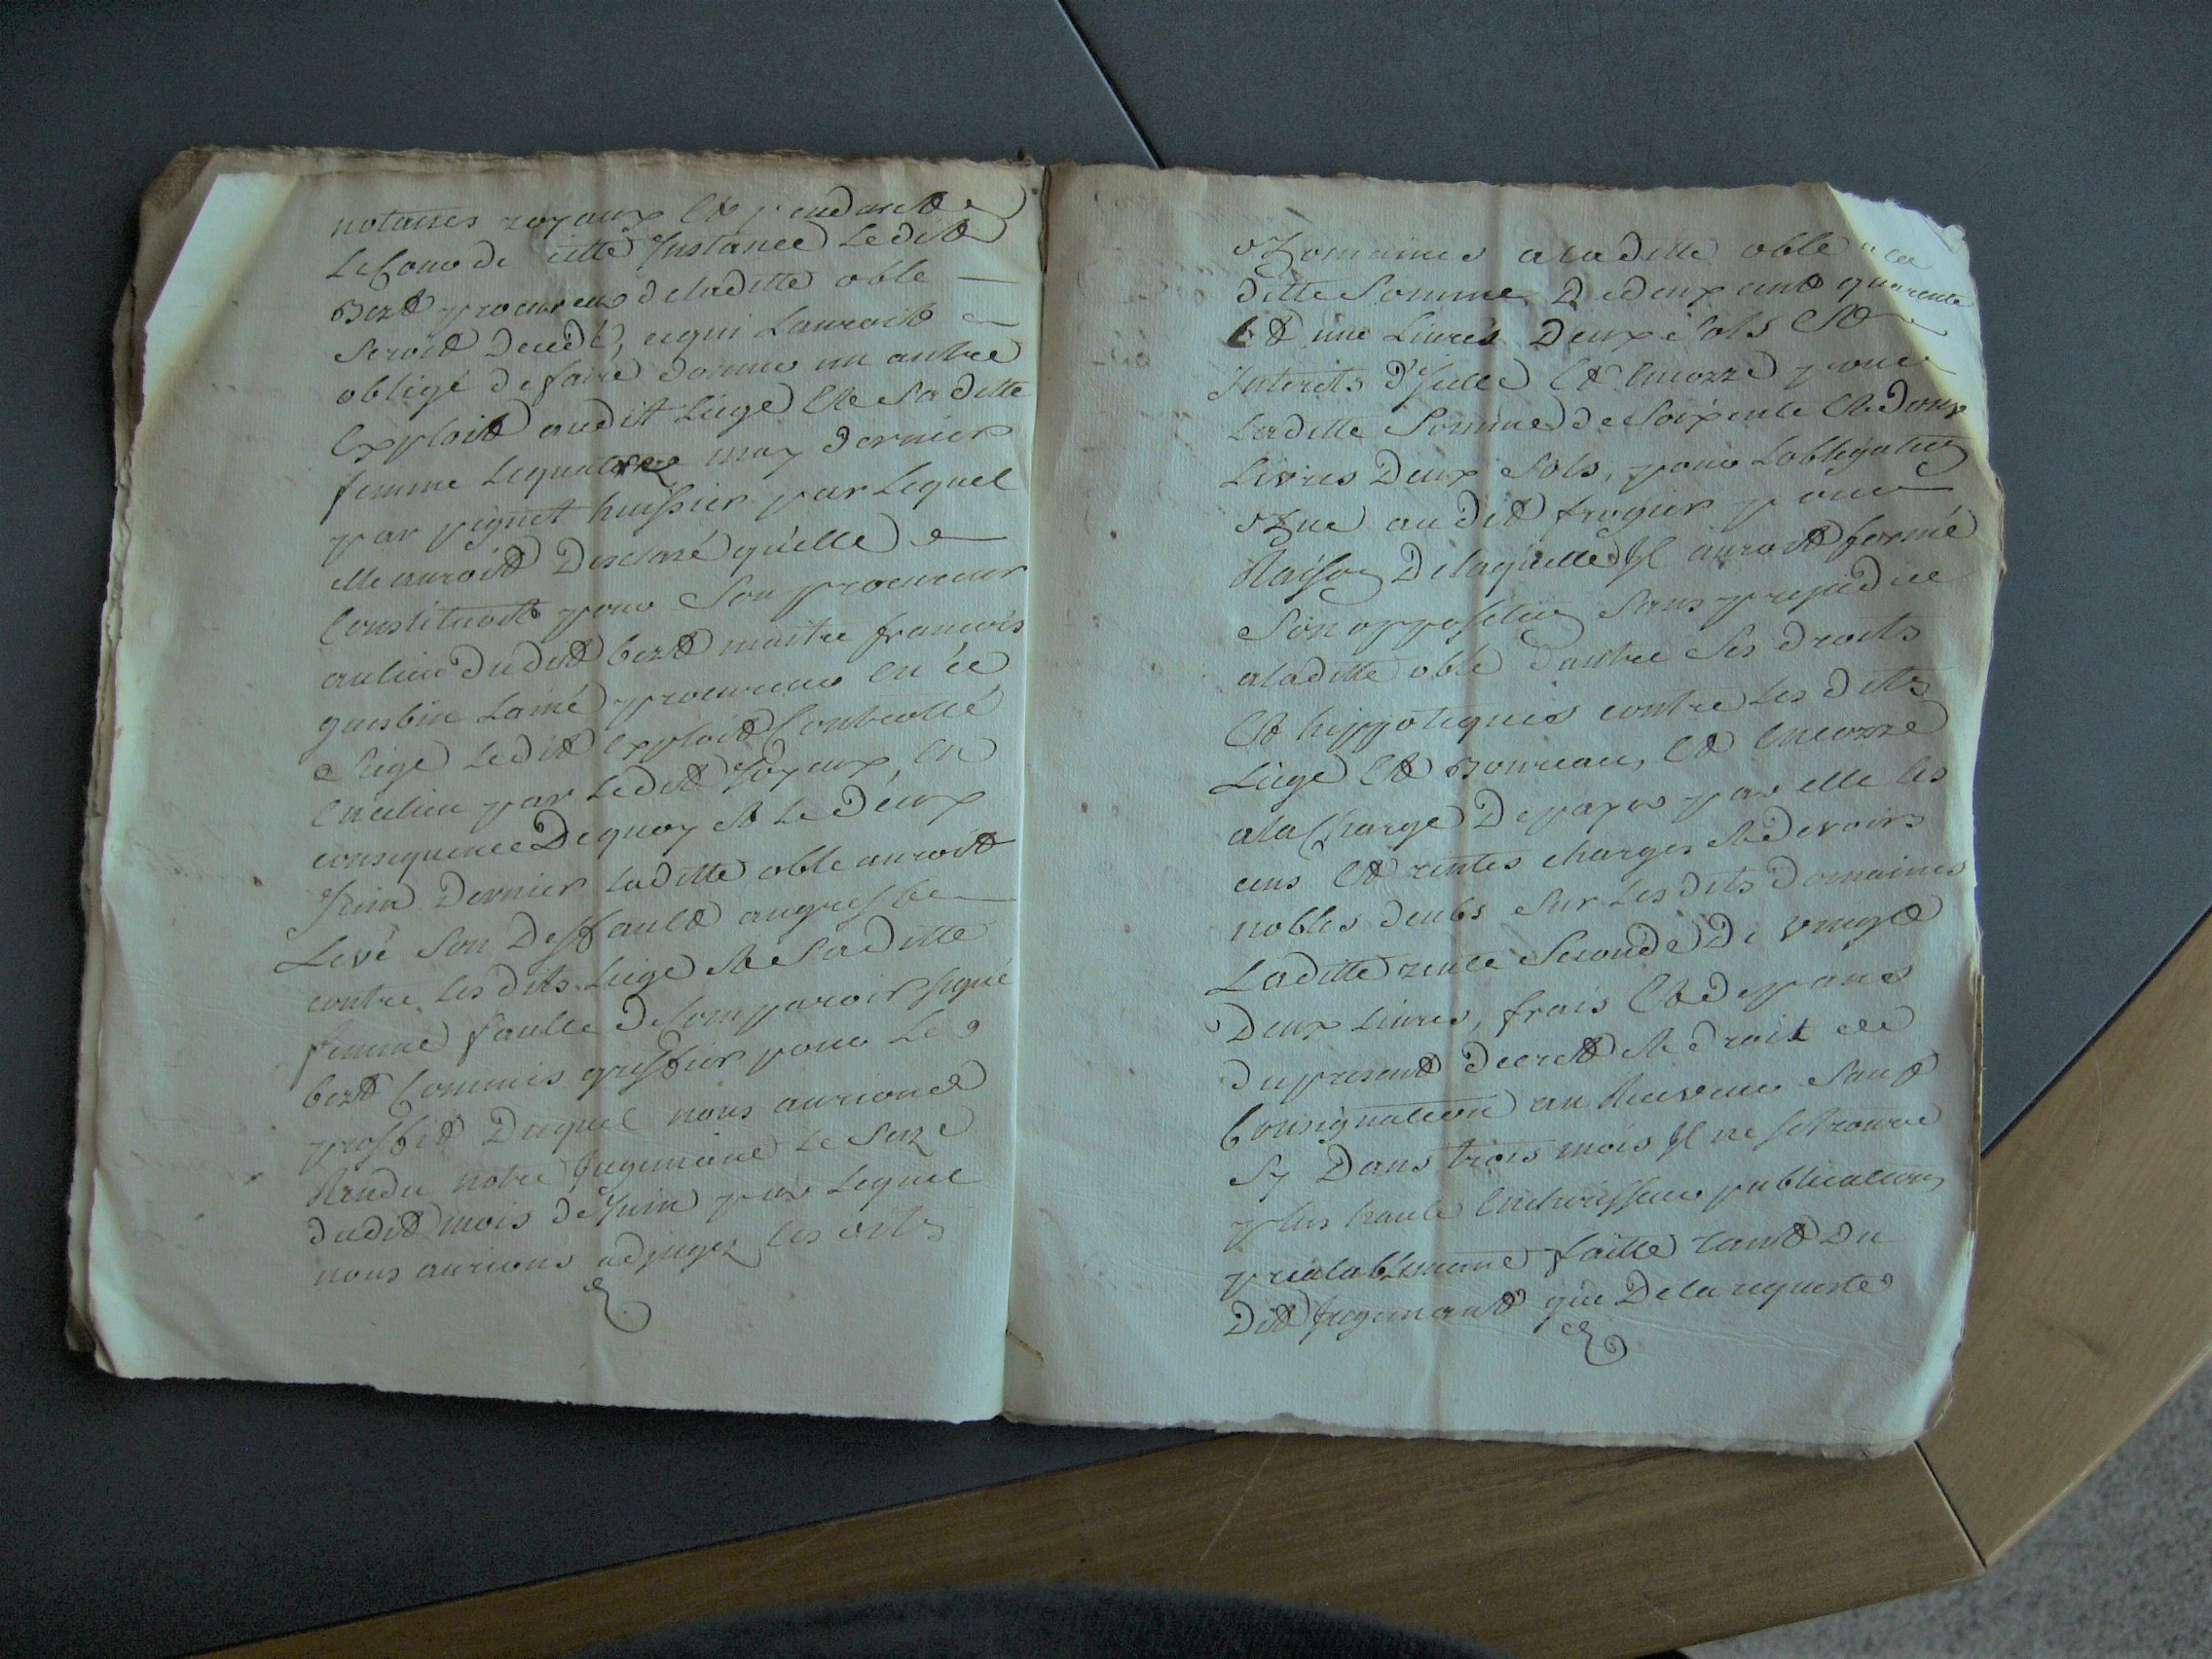 notaires royaux Et pendant
Le Cours de cette Instance Ledit
Bert procureur deladitte oble
Seroit Decedé, cequi Lauroit
obligé de faire donner un autre
Exploit audit Liege Et Sa ditte
femme Lequatorze may dernier
par pignet huissier par Lequel
elle auroit Desclaré qu'elle
Constituoit pour Son procureur
aulieu dudit bert maitre francois
guesbin Lainé procureur en ce
Siege Ledit Exploit Controllé
En celieu par Ledit Joyeux, En
consequence Dequoy Et Le Deux
Juin Dernier Laditte oble auroit
Levé Son Deffault augreffe
contre Les dits Liege Et Sa Ditte
femme faulte deComparoir signé
bert Commis greffier pour Le
proffit Duquel nous aurions
Rendu notre Jugement Le Seze
dudit mois de Juin par Lequel
nous aurions adjugez les dits
Domaines aladitte oble a la
ditte Somme Dedeux cent quarente
Et une Livres Deux Sols Et
Interets d'Icelle Et Encorre pour
Laditte Somme de Soixente Et Deux
Livres Deux Sols, pour Lobligation
Due audit frogier pour
Raison Delaquelle Il auroit formé
Son opposition Sans prejudice
aladitte oble dautre Ses droits
Et hippoteques contre Les dits
Liege Et Boureau, Et Encorre
ala Charge Depayer par elle les
cens Et rentes charges Et devoirs
nobles deubs Sur Les dits Domaines
Laditte rente Seconde De vingt
Deux Livres, frais Et depans
du present decret Et droit de
Consignation au Receveur Sauf
Sy Dans trois mois Il ne Setrouve
plus haute Encherisseur publication
prealablement faitte tant Du
Dit Jugement que Dela requeste